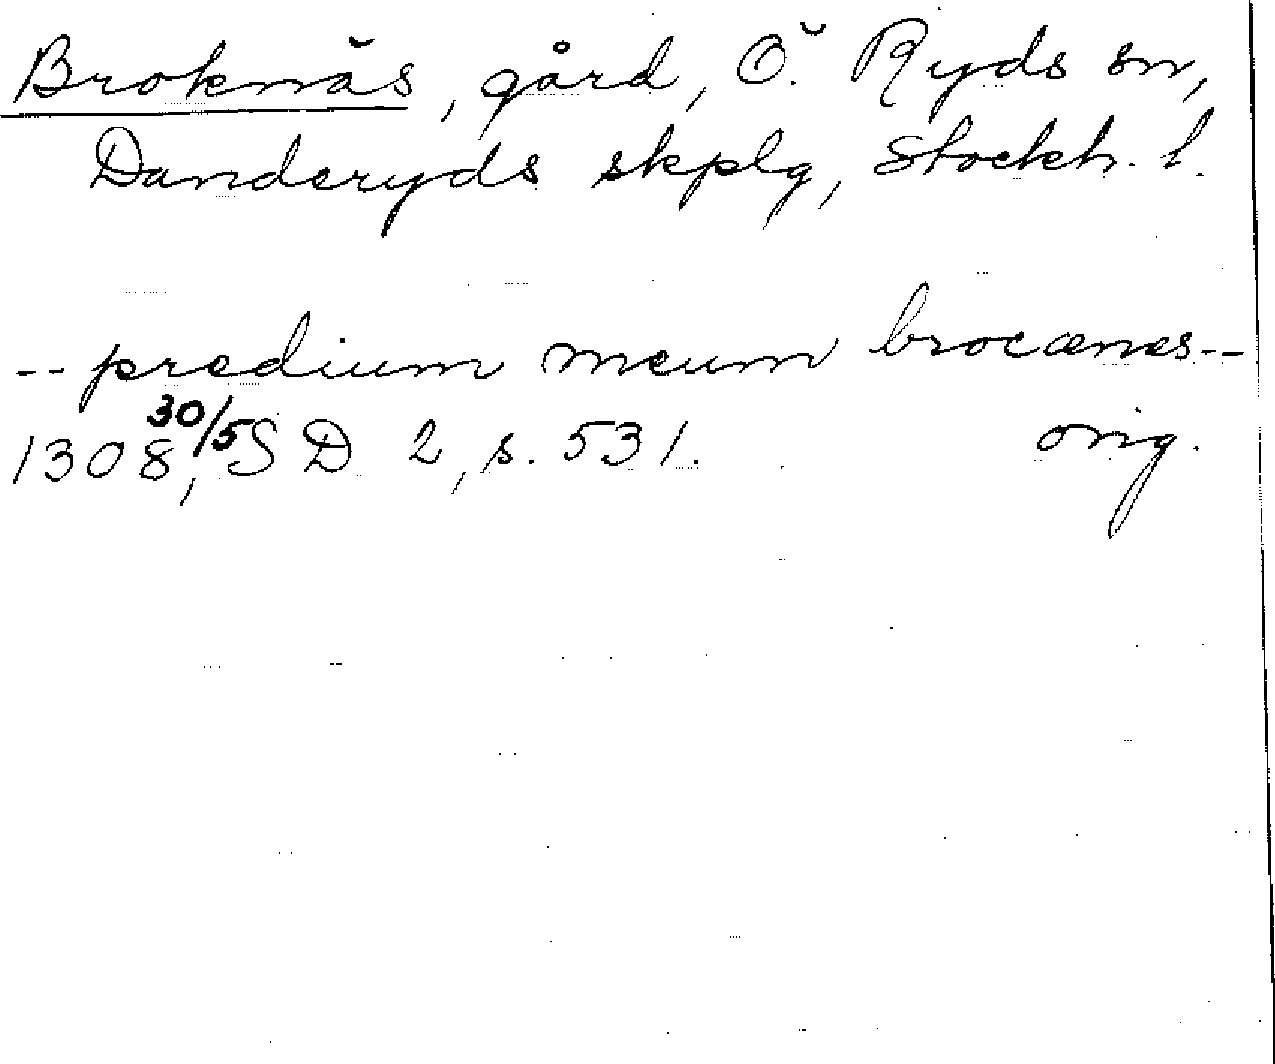 Broknäs, gård, Ö. Ryds sn,
Danderyds skplg, Stockh. l.
-- predium meum brocænes --
1308 30/5, SD 2, s. 531. orig.